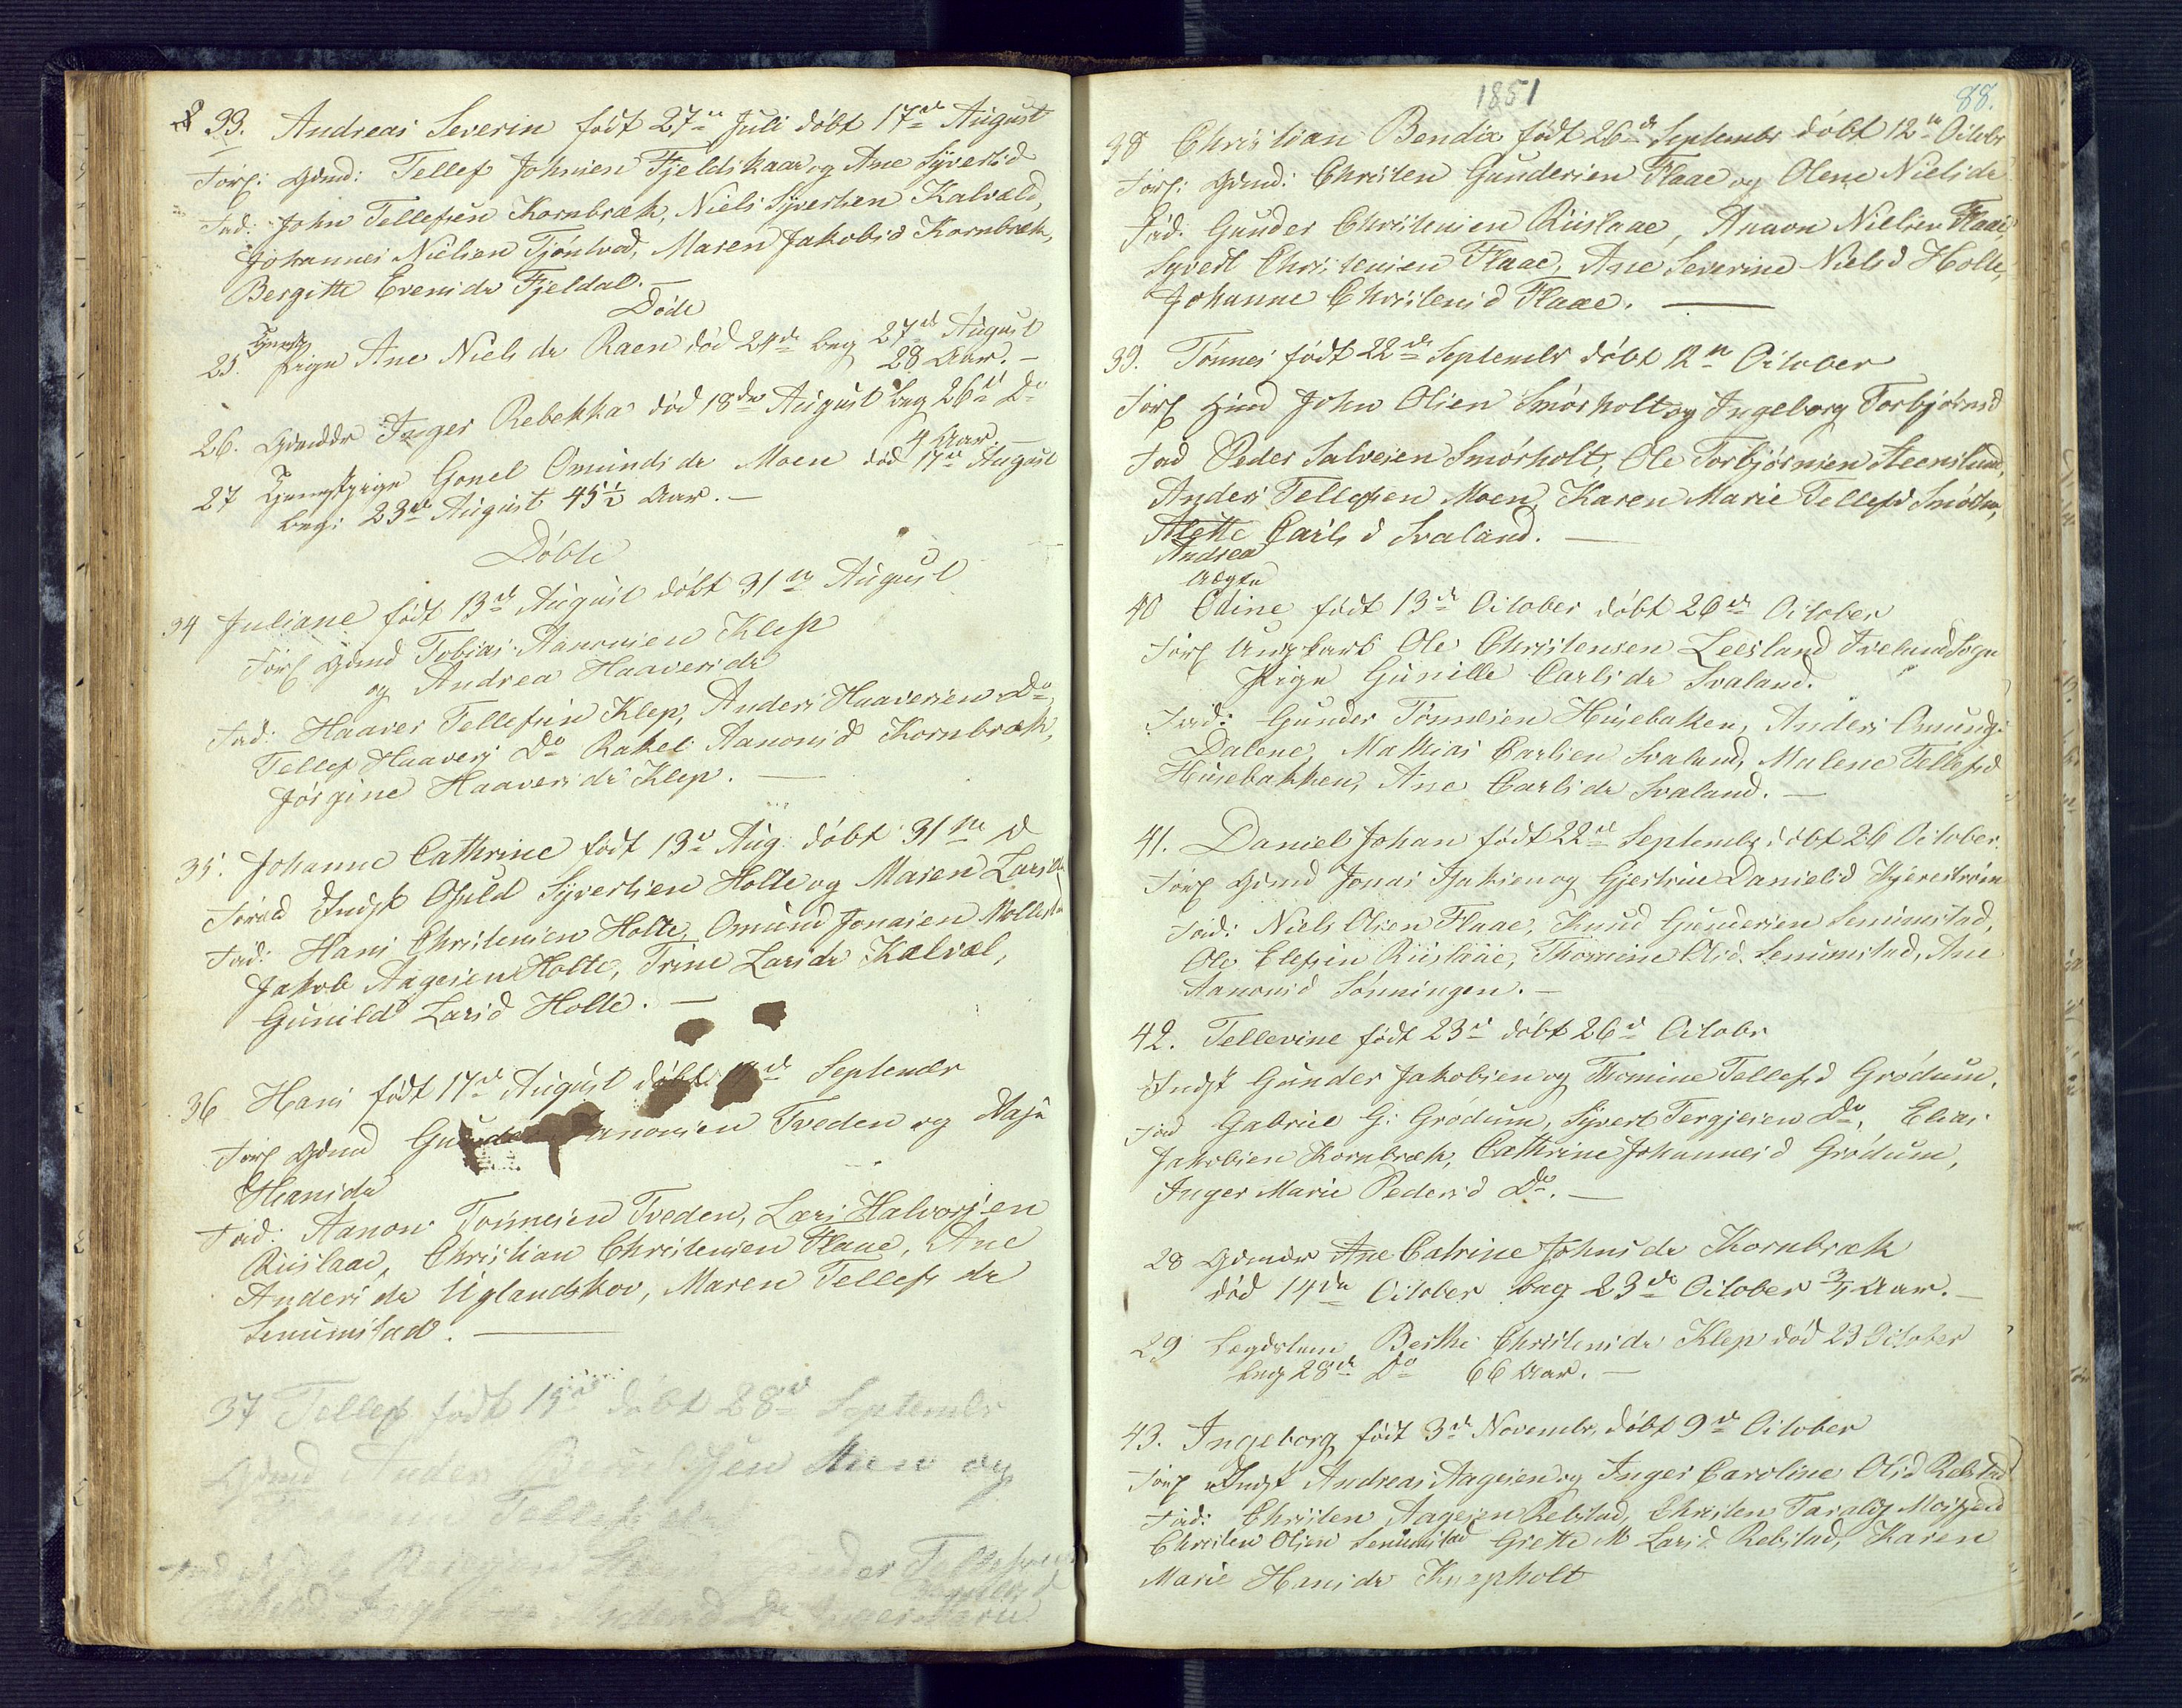 33. Andreas Severin født 27de Juli døbt 17de August
For: Gdmd: Tellef Johnsen Fjeldskaar og Ane Syvertsd
Fad: John Tellefsen Kornbræk, Niels Syvertsen Kalvæld,
Johannes Nielsen Tjøntved, Maren Jakobsd Kornbræk,
Bergitte Evensdr Fjeldal. —
Døde
25. Pige Ane Nielsdr Raen død 24de beg 27de August
28 Aar. —
26. Gdmddr Inger Rebekka død 18de August beg 26de Do
4 Aar. —
27 Tjenestpige Gonel Omundsdr Moen død 17de August
beg: 23de August 45½ Aar. —
Døbte
34 Juliane født 13de August døbt 31te August
For Gdmd Tobias Aanonsen Klep
og Andrea Haaversdr
Fad: Haaver Tellefsen Klep, Anders Haaversen Do
Tellef Haavers Do Rakel Aanonsd Kornbræk,
Jørgine Haaversdr Klep. —
35. Johanne Cathrine født 13de Aug døbt 31te d
Indst Opuld Syvertsen Holte og Maren Larsdr
Fad: Hans Christensen Holte, Omund Jonasen Mollestad
Jakob Aagesen Holte, Trine Larsdr Kalvæl,
Gunild Larsd Holte. —
36 Hans født 17de August døbt de September
For Gdmd Gunder Aanonsen Tveden og Maja
Hansdr
Fad: Aanon Tønnesen Tveden, Lars Halvorsen
Riislaae, Christian Christensen Flaae, Ane
Andersdr Uglandskov, Maren Tellefsdr
Senumstad. —
37 Tellef født 19de døbt 28de Septembr
Gdmd Anders og
Tellefsdr
Tellefsen
Inger Marie
1851
88.
38 Christian Bendix født 26de Septembr døbt 12te Octobr
For: Gdmd: Christen Gundersen Flaae og Olene Nielsdr
Fad. Gunder Christensen Riislaae, Anaon Nielsen Flaae,
Syvert Christensen Flaae, Ane Severine Nielsd Holte,
Johanne Christensd Flaae. —
39. Tønnes født 22de Septembr døbt 12te October
For Hmd John Olsen Smørholt og Ingeborg Torbjørnsd
Fad Peder Salvesen Smørholt, Ole Torbjørnsen Steenslund,
Anders Tellefsen Moen, Karen Marie Tellefsd Smørho,
Alette Carlsd Svaland. —
Andrea
uægte
40 Edine født 13de October døbt 26de October
For Ungkarl Ole Christensen Leesland Iveland Sogn
Pige Gunille Carlsdr Svaland.
Fad: Gunder Tønnesen Husebakken, Anders Omunds
Dalene, Mathias Carlsen Svaland, Malene Tellefsd
Husebakken, Ane Carlsdr Svaland. —
41. Daniel Johan født 22de Septembr døbt 26 October.
For Gdmd Jonas Isaksen og Gjertrue Danielsd Kjerestrøm
Fad: Niels Olsen Flaae, Knud Gundersen Senumstad,
Ole Elefsen Riislaae, Thomine Olsd. Senumstad, Ane
Aanonsd Lønningen. —
42. Tellevine født 23de døbt 26de Octobr
Indst Gunder Jakobsen og Thomine Tellefsd Grødum.
Fad Gabriel G: Grødum, Syvert Tergjesen Do, Elias
Jakobsen Kornbræk, Cathrine Johannesd Grødum,
Inger Marie Pedersd Do. —
28 Gdmdr Ane Catrine Johnsdr Kornbræk
død 14de October beg 23de October ¾ Aar. —
29 Lægdslem Berthe Christensdr Klep død 23 October
beg 28de Do 66 Aar. —
43. Ingeborg født 3de Novembr. døbt 9de October
For Indst Andreas Aagesen og Inger Caroline Olsd Rebstad
Fad: Christen Aagesen Rebstad, Christen Taralds Mosfjeld
Christen Olsen Senumstad Grette M Larsd Rebstad, Karen
Marie Hansdr Knepholt